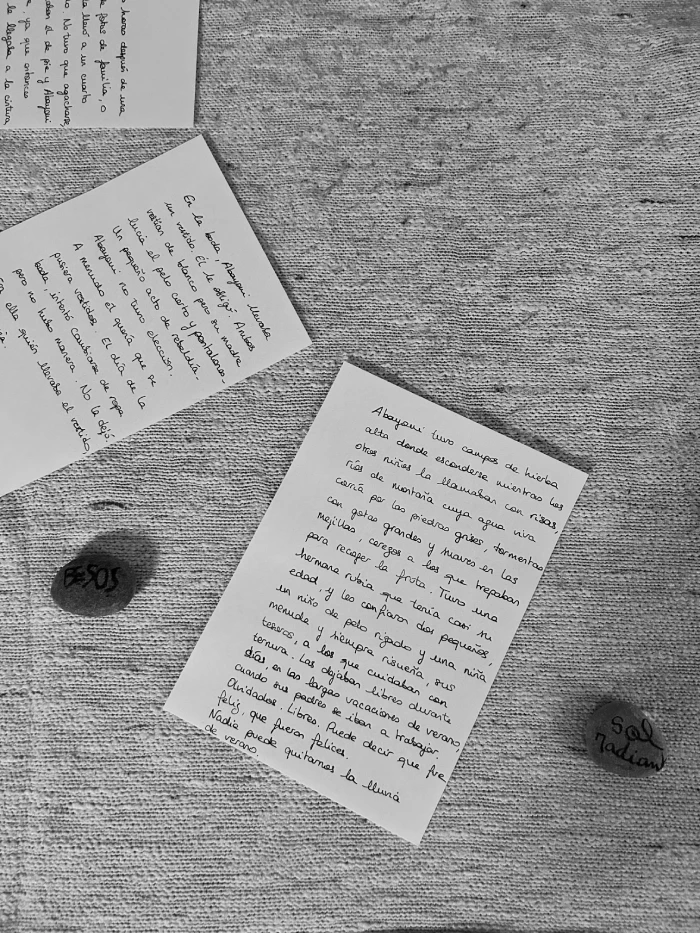 horas después de una
fotos de familia, o
llevó a un cuarto
No tuvo que agacharse,
él de pie y Abayomi
ya que entonces
le llegaba a la cintura,
En la boda, Abayomi llevaba
un vestido. Él le obligó. Ambos
vestían de blanco pero su madre
lucía el pelo corto y pantalones.
Un pequeño acto de rebeldía.
Abayomi no tuvo elección.
A menudo él quería que se
pusiera vestidos. El día de la
boda, intentó cambiarse de ropa
pero no hubo manera. No la dejó.
ella quién llevaba el vestido
Abayomi tuvo campos de hierba
alta donde esconderse mientras las
otras niñas la llamaban con risas,
ríos de montaña cuya agua viva
corría por las piedras grises, tormentas
con gotas grandes y suaves en las
mejillas, cerezos a los que trepaban
para recoger la fruta. Tuvo una
hermana rubia que tenía casi su
edad, y les confiaron dos pequeños,
un niño de pelo rizado y una niña
menuda y siempre risueña, sus
tesoros, a los que cuidaban con
ternura. Las dejaban libres durante
días, en las largas vacaciones de verano,
cuando sus padres se iban a trabajar.
Olvidados. Libres. Puede decir que fue
feliz, que fueron felices.
Nadie puede quitarnos la lluvia
de verano.
BESOS
Sol
radian